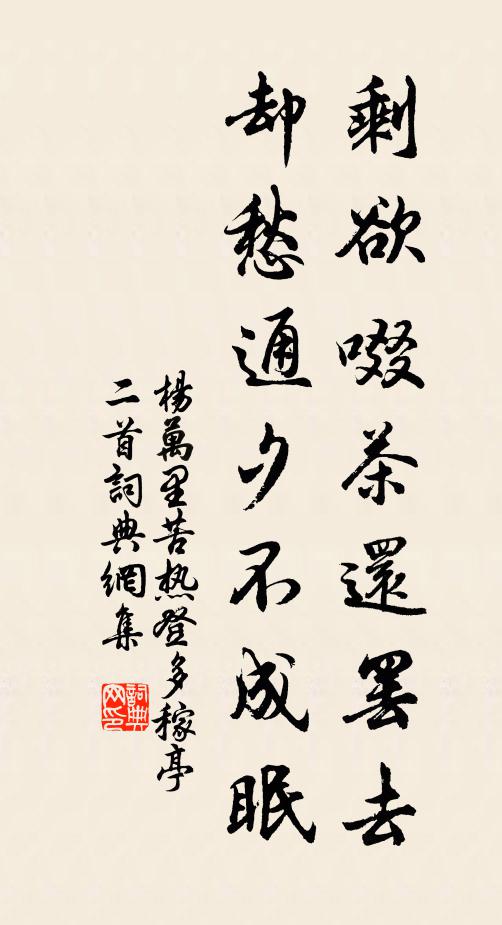 剩欲啜茶還罷去
却愁通夕不成眠
楊萬里苦热登多稼亭
二首詞典網集
詞典
网印